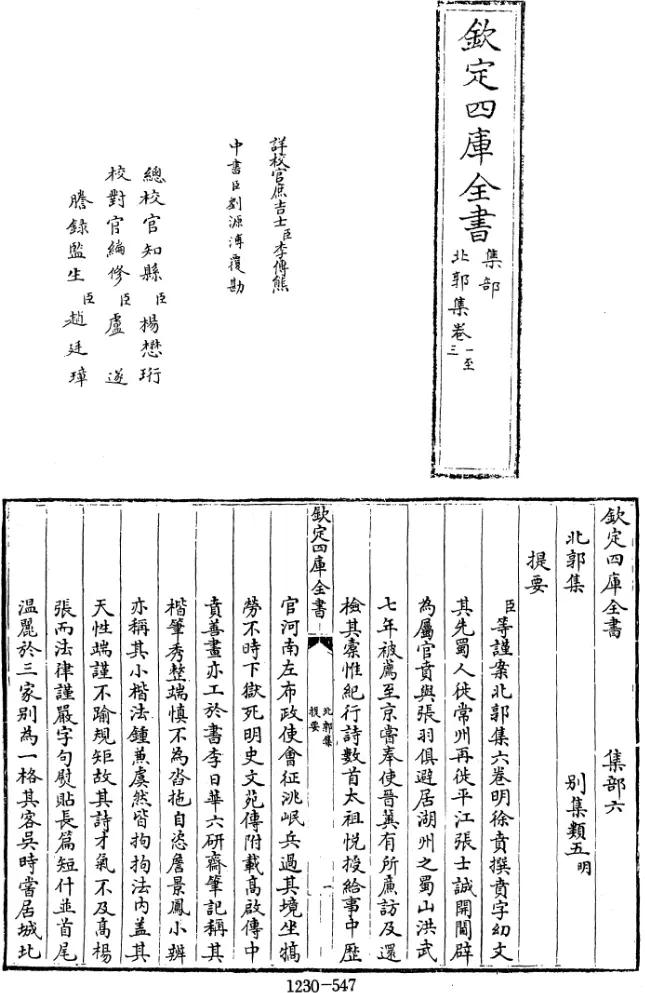 欽定四庫全書
集部
北郭集卷一至三
詳校官庶吉士臣李傅熊
中書臣劉源溥覆勘
總校官知縣臣楊懋珩
校對官編修臣盧遂
謄錄監生臣趙廷璋
欽定四庫全書 集部六
北郭集 別集類五明
提要
臣等謹案北郭集六卷明徐賁撰賁字幼文
其先蜀人徙常州再徙平江張士誠開閫辟
為屬官賁與張羽俱避居湖州之蜀山洪武
七年被薦至京嘗奉使晉冀有所廉訪及還
檢其槖惟紀行詩數首太祖悅授給事中歷
欽定四庫全書
北郭集
提要
一
官河南左布政使會征洮岷兵過其境坐犒
勞不時下獄死明史文苑傳附載高啟傳中
賁善畫亦工於書李日華六研齋筆記稱其
楷筆秀整端慎不為沓拖自恣詹景鳳小辨
亦稱其小楷法鍾兼虞然皆拘拘法內盖其
天性端謹不踰規矩故其詩才氣不及高楊
張而法律謹嚴字句熨貼長篇短什並首尾
温麗於三家别為一格其客吳時嘗居城北
1230-547